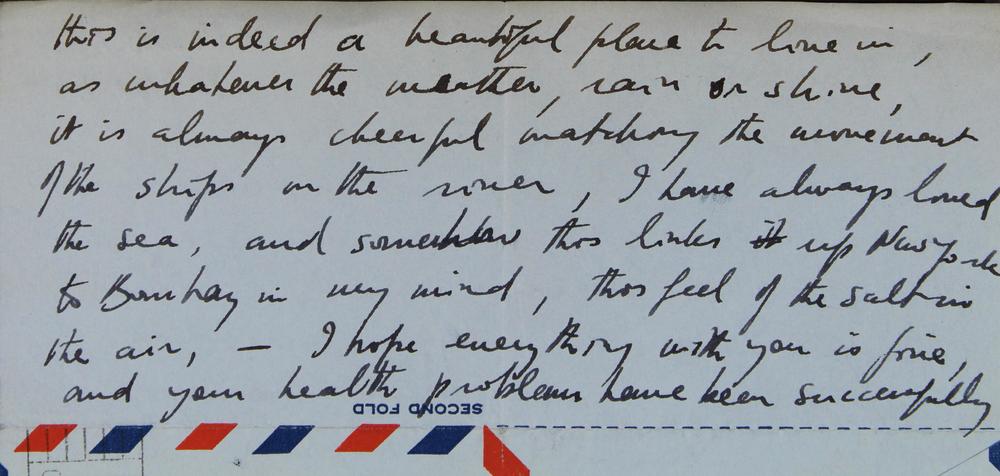 this is indeed a beautiful place to live in,
as whatever the weather, rain or shine,
it is always cheerful watching the movement
of the ships on the river, I have always loved
the sea, and somehow this links it up New York
to Bombay in my mind, this feel of the salt in
the air, — I hope everything with you is fine,
and your health problems have been successfully
SECOND FOLD